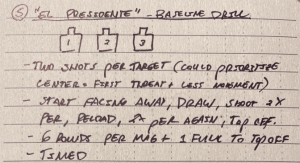 ⑤ "EL PRESIDENTE" - BASELINE DRILL
1 2 3
- TWO SHOTS PER TARGET (COULD PRIORITIZE
CENTER = FIRST THREAT + LESS MOVEMENT)
- START FACING AWAY, DRAW, SHOOT 2X
PER, RELOAD, 2X PER AGAIN, TOP OFF.
- 6 ROUNDS PER MAG + 1 FULL TO TOP OFF
- TIMED